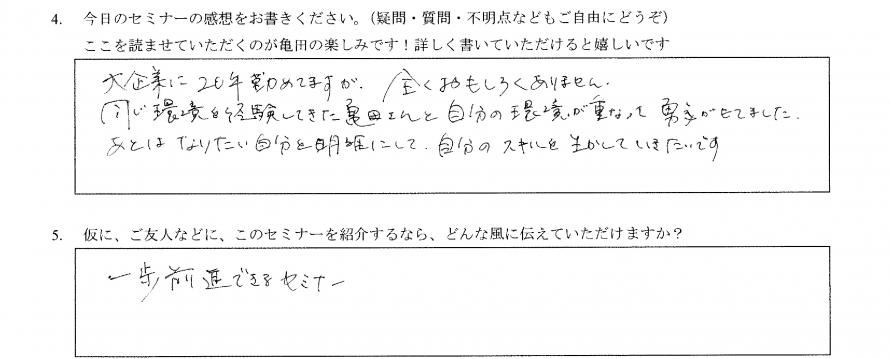 4. 今日のセミナーの感想をお書きください。（疑問・質問・不明点などもご自由にどうぞ）
ここを読ませていただくのが亀田の楽しみです！詳しく書いていただけると嬉しいです
大企業に20年勤めてますが、全くおもしろくありません。
同じ環境を経験してきた亀田さんと自分の環境が重なって勇気がもてました。
あとはなりたい自分を明確にして、自分のスキルを生かしていきたいです
5. 仮に、ご友人などに、このセミナーを紹介するなら、どんな風に伝えていただけますか？
一歩前進できるセミナー